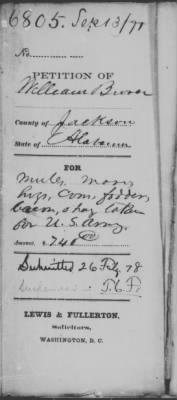 6805. Sept 3/77
No.
PETITION OF
William Brown
County of Jackson
State of Alabama
FOR
Mules, mare,
hogs, corn, fodder,
bacon, & hay taken
for U.S. Army.
Amount, $740
Submitted 26 Feby 78
T.C.F.
LEWIS & FULLERTON,
Solicitors,
WASHINGTON, D. C.